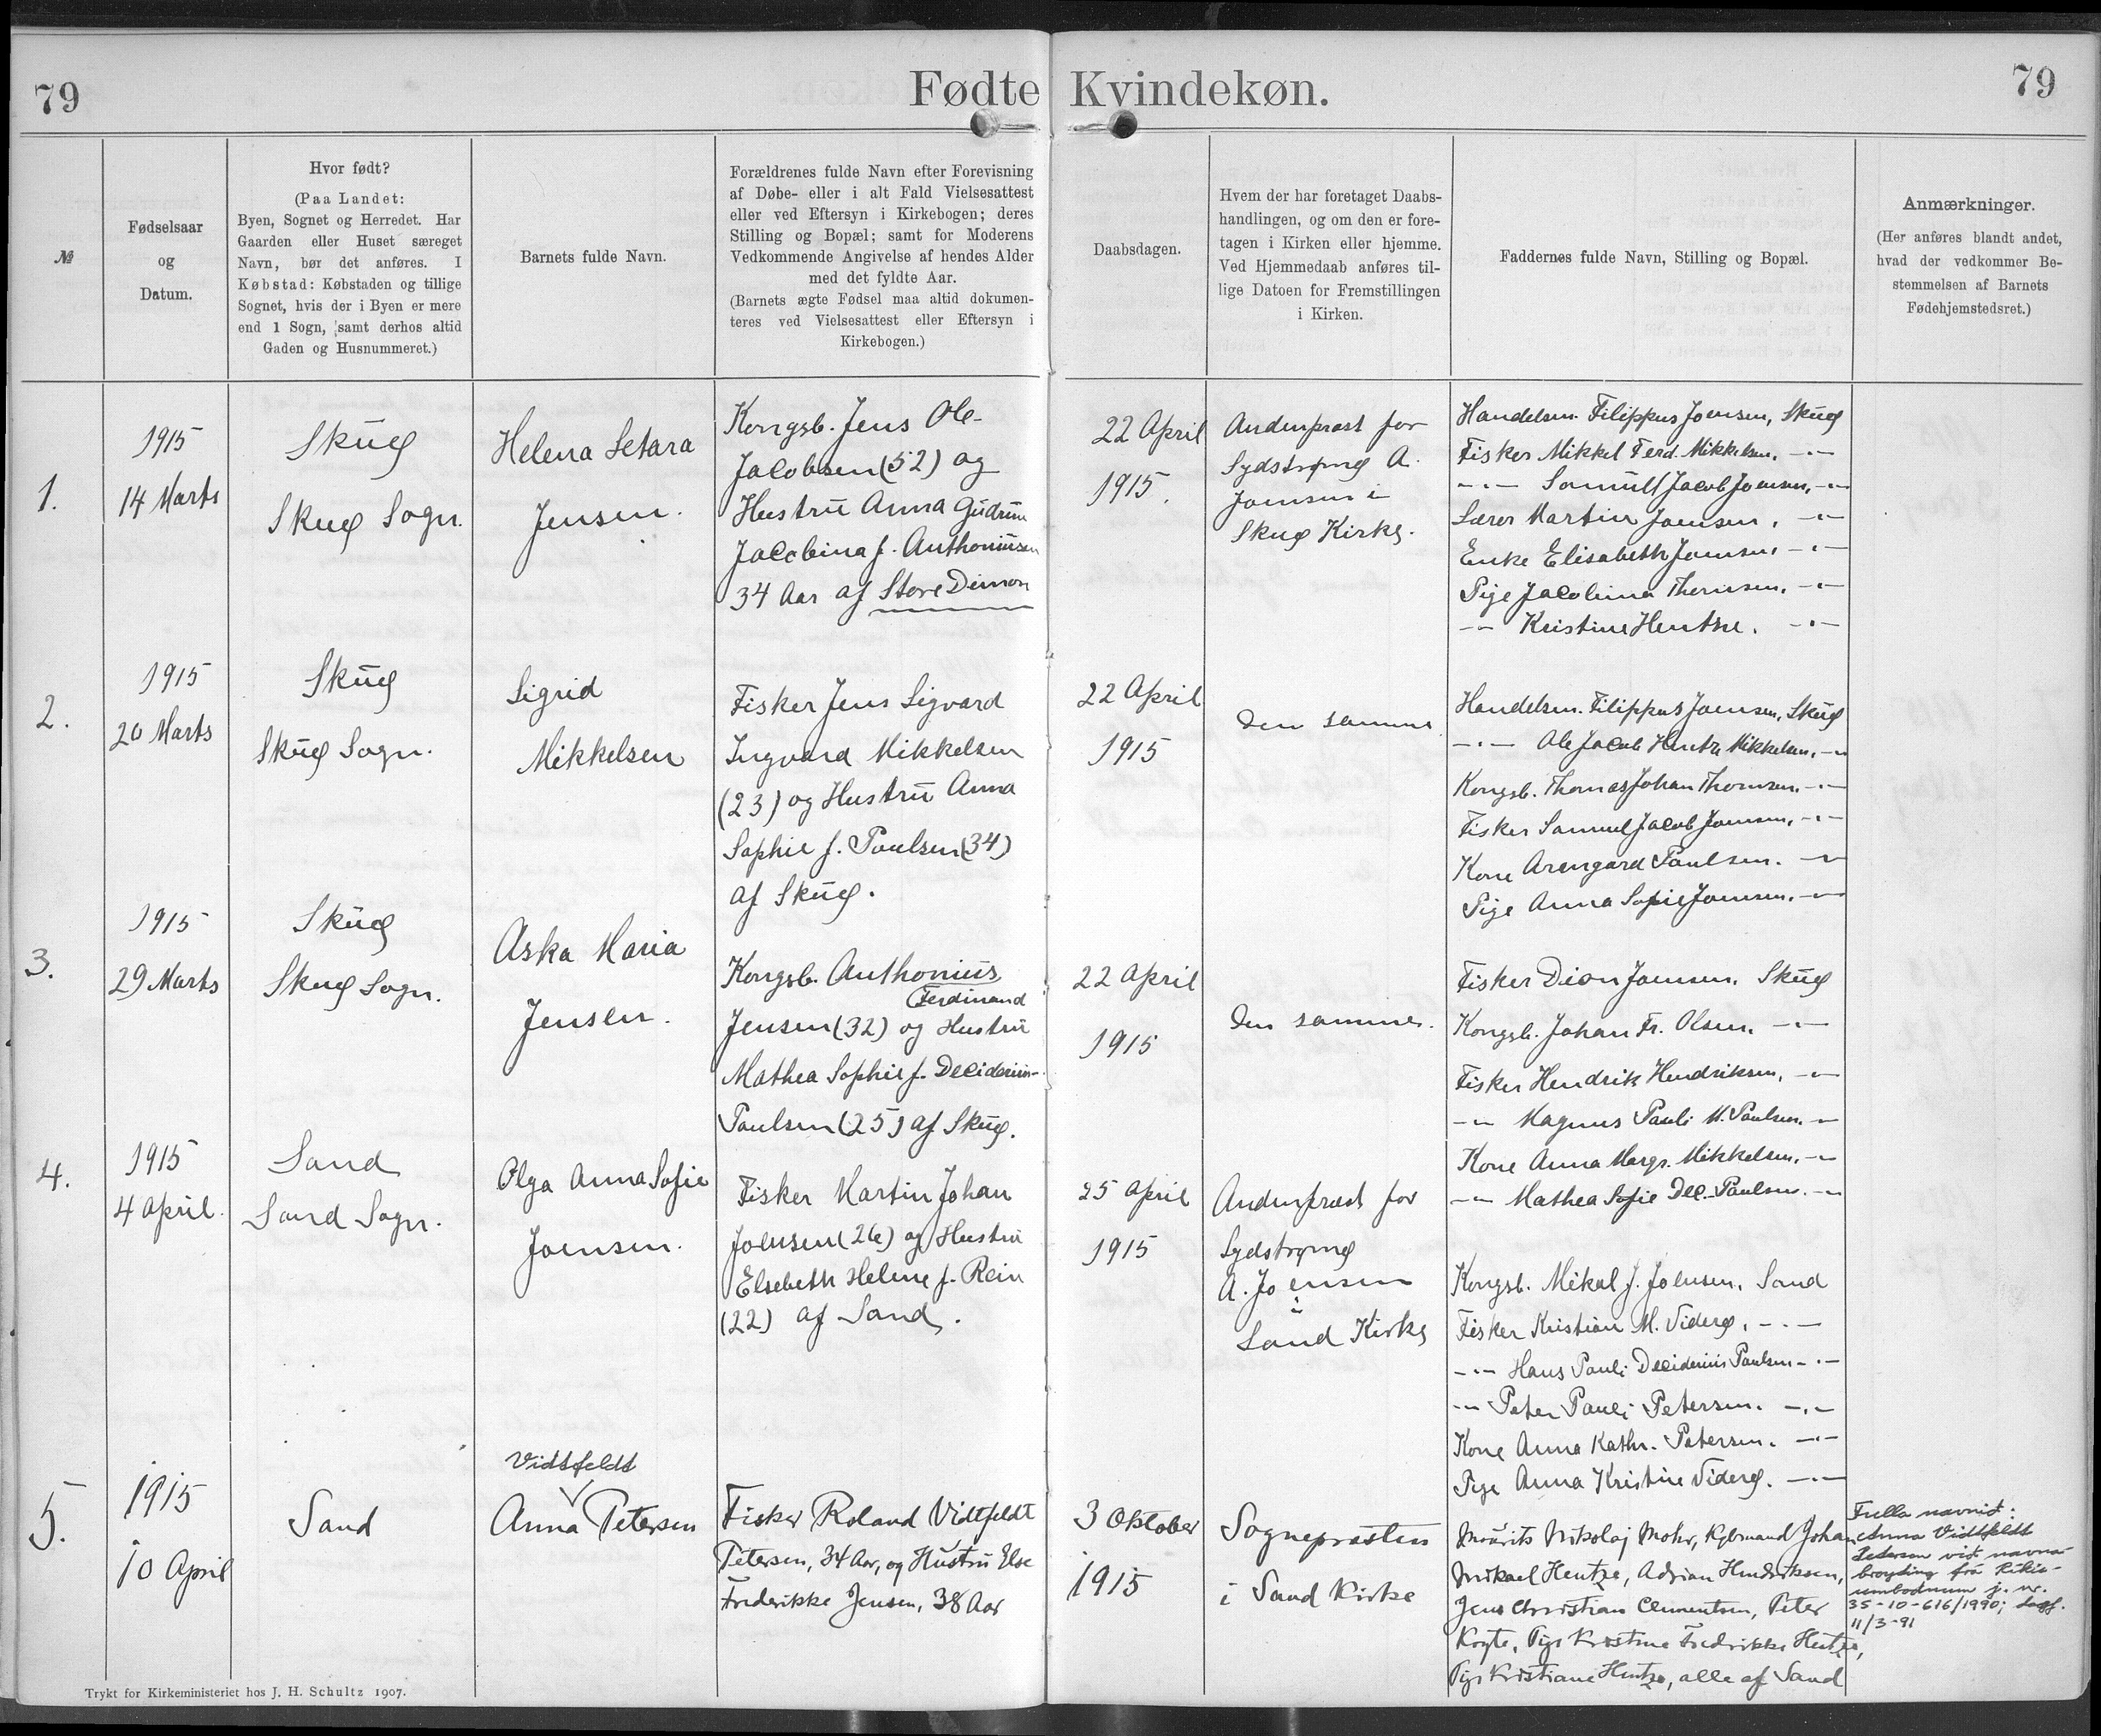 79
Fødte Kvindekøn.
79
№
Fødselsaar
og
Datum.
Hvor født?
(Paa Landet:
Byen, Sognet og Herredet. Har
Gaarden eller Huset særeget
Navn, bør det anføres. I
Købstad: Købstaden og tillige
Sognet, hvis der i Byen er mere
end 1 Sogn, samt derhos altid
Gaden og Husnummeret.)
Barnets fulde Navn.
Forældrenes fulde Navn efter Forevisning
af Døbe- eller i alt Fald Vielsesattest
eller ved Eftersyn i Kirkebogen; deres
Stilling og Bopæl; samt for Moderens
Vedkommende Angivelse af hendes Alder
med det fyldte Aar.
(Barnets ægte Fødsel maa altid dokumen-
teres ved Vielsesattest eller Eftersyn i
Kirkebogen.)
Daabsdagen.
Hvem der har foretaget Daabs-
handlingen, og om den er fore-
tagen i Kirken eller hjemme.
Ved Hjemmedaab anføres til-
lige Datoen for Fremstillingen
i Kirken.
Faddernes fulde Navn, Stilling og Bopæl.
Anmærkninger.
(Her anføres blandt andet,
hvad der vedkommer Be-
stemmelsen af Barnets
Fødehjemstedsret.)
1.
1915
14 Marts
Skuø
Skuø Sogn.
Helena Setara
Jensen.
Kongsb. Jens Ole-
Jacobsen (52) og
Hustru Anna Gudrun
Jacobina f. Anthoniusen
34 Aar af Store Dimon
22 April
1915.
Andenpræst for
Sydstrømø A.
Joensen i
Skuø Kirke.
Handelsm. Filippus Joensen, Skuø
Fisker Mikkel Ferd. Mikkelsen, -"-
-"- Samuel Jacob Joensen, -"-
Lærer Martin Joensen, -"-
Enke Elisabeth Joensen, -"-
Pige Jacobina Thomsen, -"-
-"- Kristine Hentze. -"-
2.
1915
20 Marts
Skuø
Skuø Sogn.
Sigrid
Mikkelsen
Fisker Jens Sigvard
Ingvard Mikkelsen
(23) og Hustru Anna
Sophie f. Poulsen (34)
af Skuø.
22 April
1915
Den samme
Handelsm. Filippus Joensen, Skuø
-"- Ole Jacob Hentze Mikkelsen, -"-
Kongsb. Thomas Johan Thomsen, -"-
Fisker Samuel Jacob Joensen, -"-
Kone Arengard Paulsen. -"-
Pige Anna Sofie Joensen, -"-
3.
1915
29 Marts
Skuø
Skuø Sogn.
Aska Maria
Jensen.
Kongsb. Anthonius
Ferdinand
Jensen (32) og Hustru
Mathea Sophie f. Deciderius-
Paulsen (25) af Skuø.
22 April
1915
Den samme.
Fisker Dion Joensen. Skuø
Kongsb. Johan Fr. Olsen, -"-
Fisker Hendrik Hendriksen, -"-
-"- Magnus Pauli M. Paulsen, -"-
Kone Anna Margr. Mikkelsen, -"-
-"- Mathea Sofie Dec. Paulsen. -"-
4.
1915
4 April.
Sand
Sand Sogn.
Olga Anna Sofie
Joensen.
Fisker Martin Johan
Joensen (26) og Hustru
Elsebeth Helene f. Rein
(22) af Sand.
25 April
1915
Andenpræst for
Sydstrømø
A. Joensen
i
Sand Kirke
Kongsb. Mikal J. Joensen, Sand
Fisker Kristian M. Viderø, -"-
-"- Hans Pauli Deciderius Paulsen -"-
-"- Peter Pauli Petersen. -"-
Kone Anna Kathr. Petersen. -"-
Pige Anna Kristine Viderø. -"-
5.
1915
10 April
Sand
Vidtfeldt
Anna Petersen
Fisker Roland Vidtfeldt
Petersen, 34 Aar, og Hustru Else
Frederikke Jensen, 38 Aar
3 Oktober
1915
Sognepræsten
i Sand Kirke
Mourits Nikolaj Mohr, Købmand Johan
Mikael Hentze, Adrian Hendriksen,
Jens Christian Clementsen, Peter
Pige Kristine Fredrikke Hentze,
Pige Kristiane Hentze, alle af Sand
Fulla navnið:
Anna Vidtfeldt
Petersen við navna-
broyting frá Ríkis-
umboðnum j. nr.
35-10-616/1990;
11/3-91
Trykt for Kirkeministeriet hos J. H. Schultz 1907.